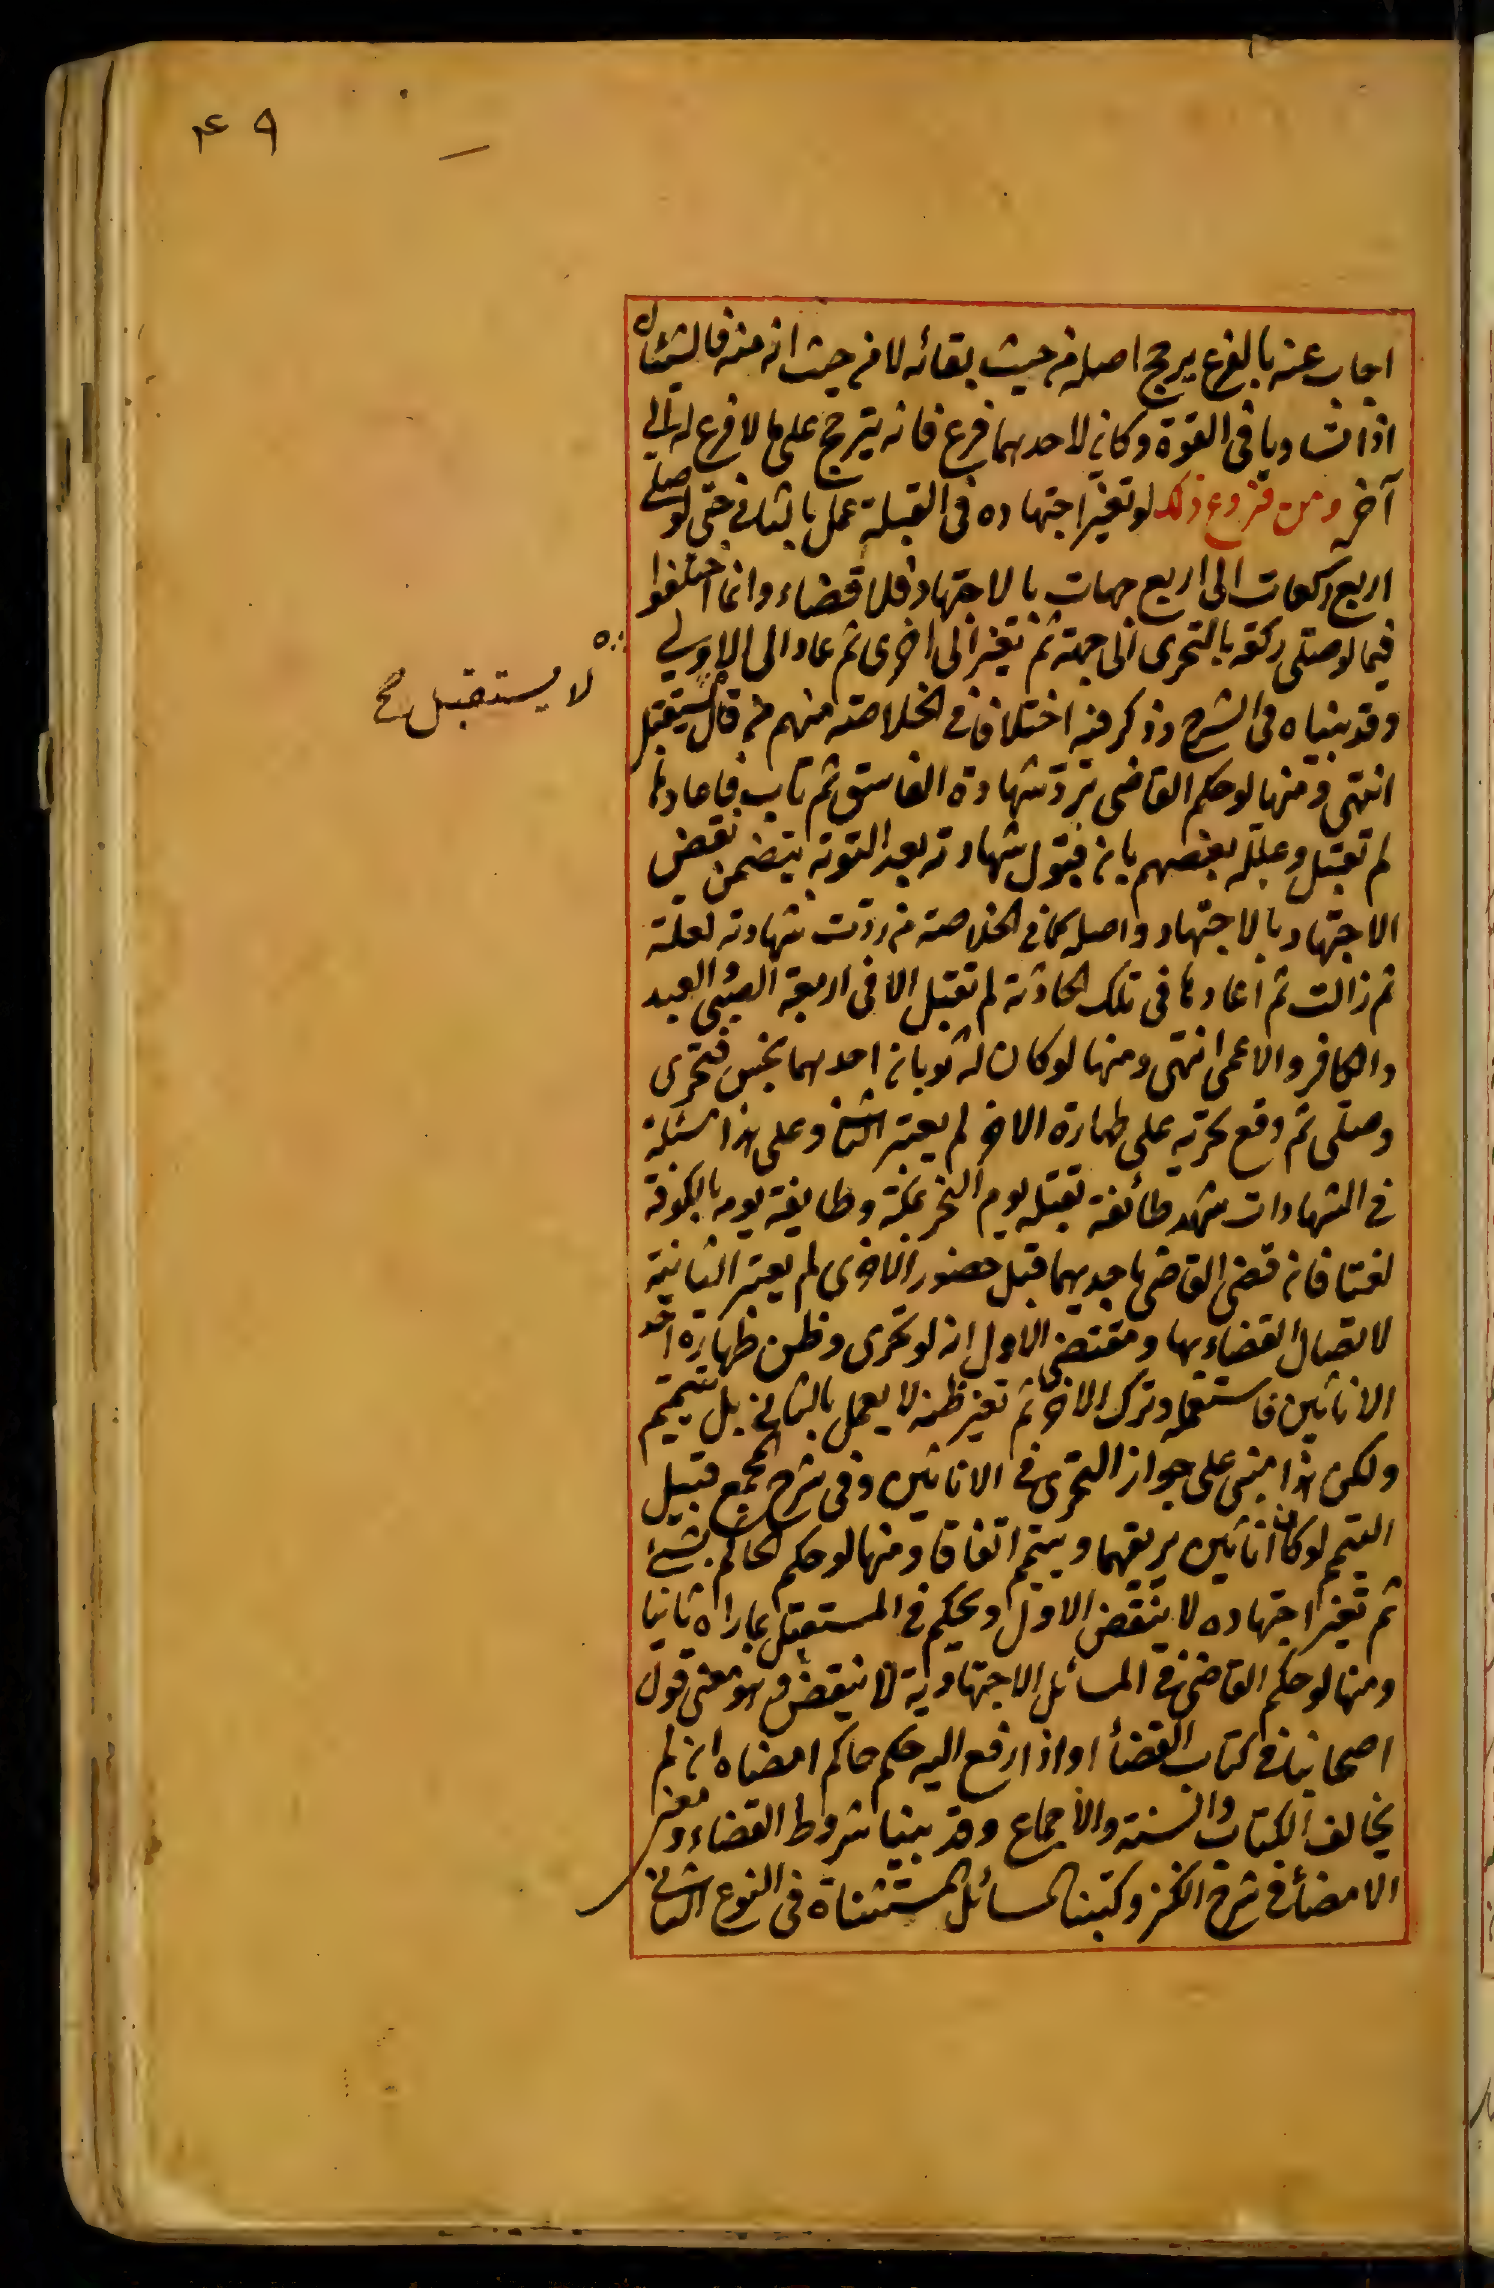 ۴۹
اجاب عنه بالفرع يرجح اصله من حيث بقائه لا من حيث انه منه فالشيئان
اذا تساويا فى القوة وكان لاحدهما فرع فانه يترجح على ما لا فرع له الى
آخره ومن فروع ذلك لو تغير اجتهاده فى القبلة عمل بالثانى حتى لو صلى
اربع ركعات الى اربع جهات بالاجتهاد فلا قضاء وانما اختلفوا
فيما لو صلى ركعة بالتحرى الى جهة ثم تغير الى اخرى ثم عاد الى الاولى
لا يستقبل صح
وقد بيناه فى الشرح وذكر فيه اختلافا فى الخلاصة منهم من قال يستقبل
انتهى ومنها لو حكم القاضى برد شهادة الفاسق ثم تاب فاعادها
لم تقبل وعلله بعضهم بان قبول شهادته بعد التوبة يتضمن نقض
الاجتهاد بالاجتهاد واصله كما فى الخلاصة من ردت شهادته لعلة
ثم زالت ثم اعادها فى تلك الحادثة لم تقبل الا فى اربعة الصبى والعبد
والكافر والاعمى انتهى ومنها لو كان له ثوبان احدهما نجس فتحرى
وصلى ثم وقع تحريه على طهارة الاخر لم يعتبر الثانى وعلى هذا مسئلة
فى الشهادات شهد طائفة بقتله يوم النحر بمكة وطايفة يومه بالكوفة
لغتا فان قضى القاضى باحديهما قبل حضور الاخرى لم يعتبر الثانية
لاتصال القضاء بها ومقتضى الاول انه لو تحرى وظن طهارة احد
الانائين فاستعمله وترك الاخر ثم تغير ظنه لا يعمل بالثانى بل يتيمم
ولكن هذا مبنى على جواز التحرى فى الانائين وفى شرح المجمع قبيل
التيمم لو كان انائين يريقهما ويتيمم اتفاقا ومنها لو حكم الحاكم بشئ
ثم تغير اجتهاده لا ينقض الاول ويحكم فى المستقبل بما راه ثانيا
ومنها لو حكم القاضى فى المسائل الاجتهادية لا ينقض وهو معنى قول
اصحابنا فى كتاب القضأ او اذا رفع اليه حكم حاكم امضاه ان لم
يخالف الكتاب والسنة والاجماع وقد بينا شروط القضاء ومعنى
الامضأ فى شرح الكنز وكتبنا المسائل المستثناة فى النوع الثانى